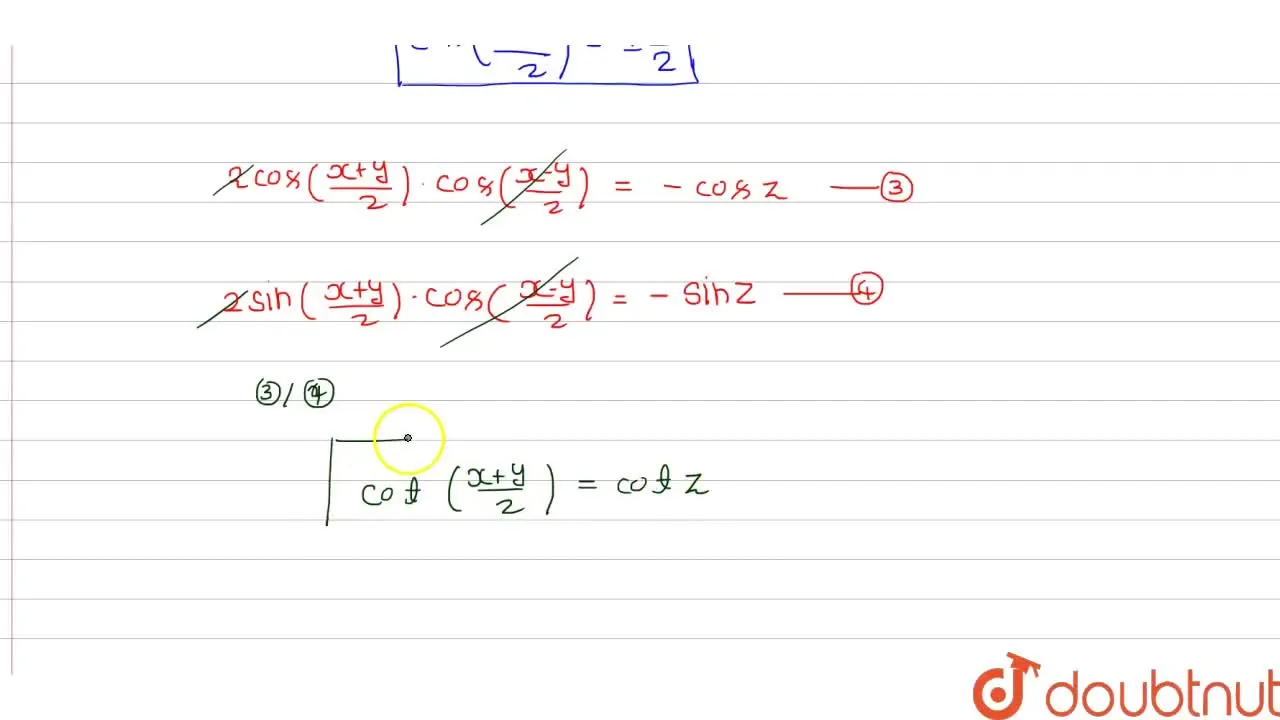 2
2cos(x+y/2) · cos(x-y/2) = - cos z —③
2sin(x+y/2) · cos(x-y/2) = - sin z —④
③/④
cot (x+y/2) = cot z
doubtnut